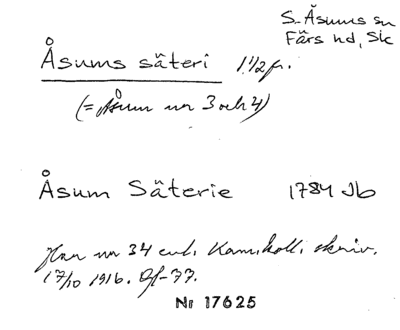 S. Åsums sn
Färs hd, Sk
Åsums säteri 1 1/2 fr.
(= Åsum nr 3 och 4)
Åsum Säterie 1784 Jb
nr 34 enl. Kam.koll. skriv.
17/10 1916.
Nr 17625